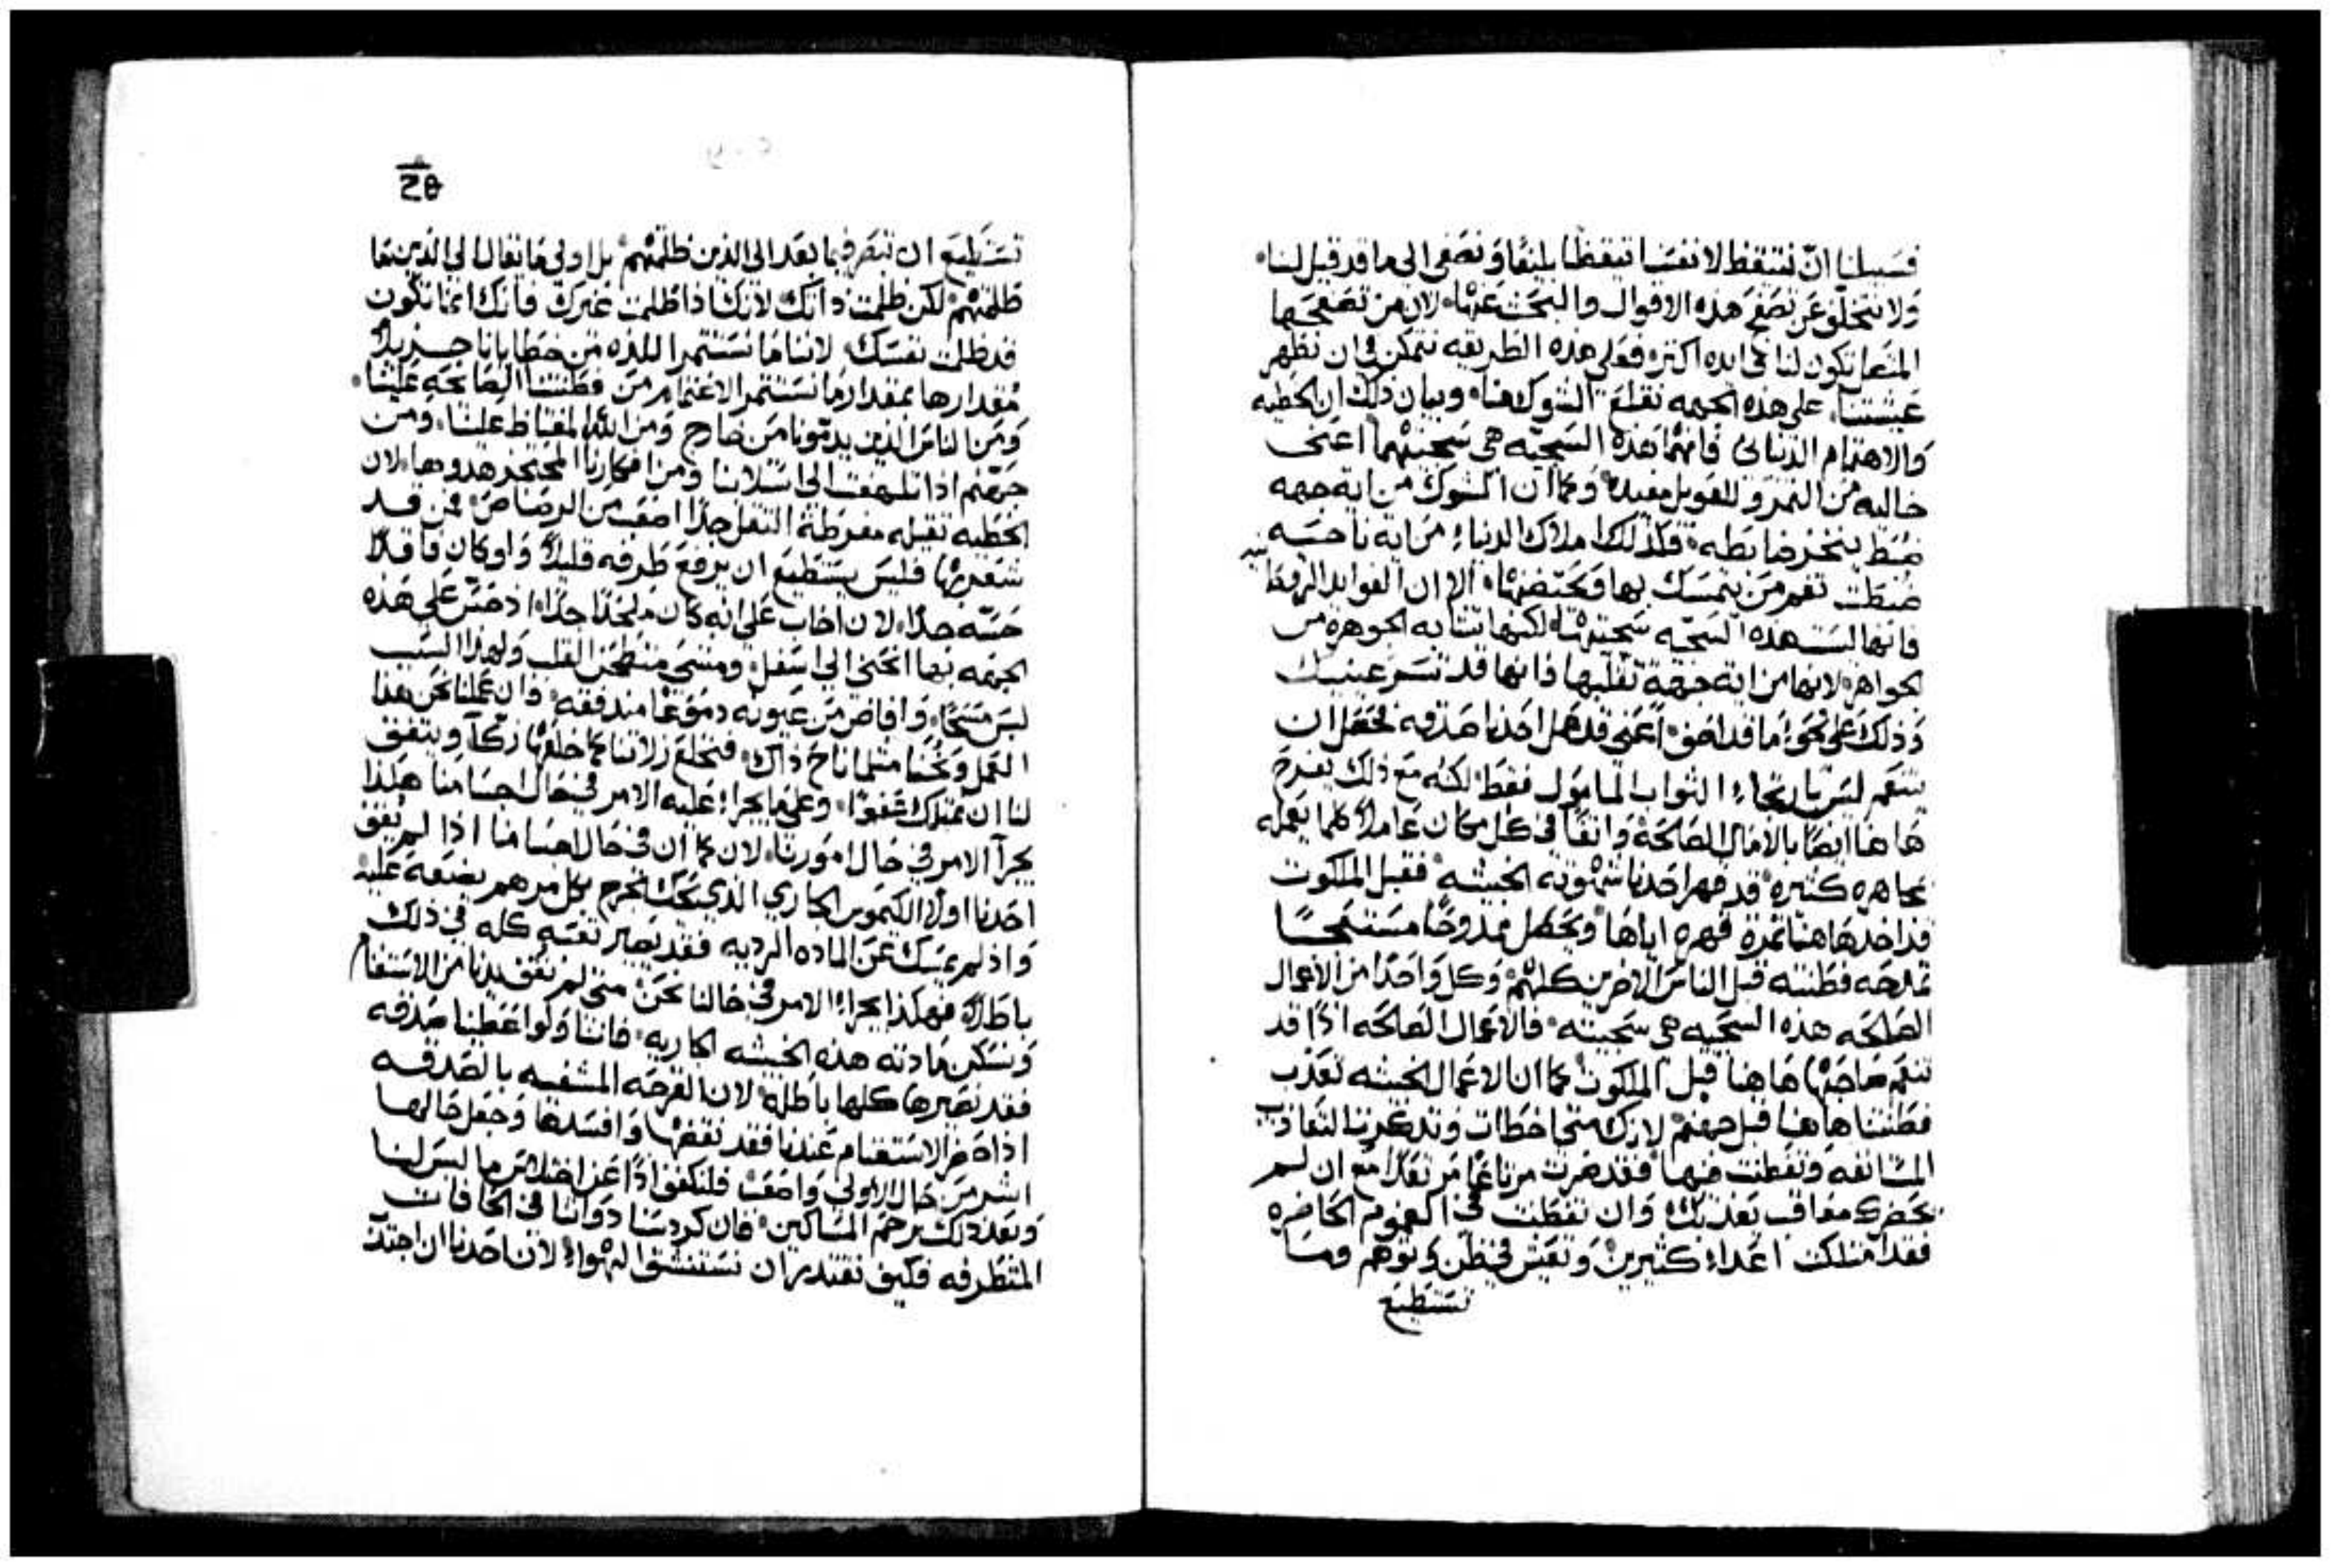 فسبيلنا ان نتيقظ لانفسنا تيقظا بليغا ونصغي الى ما قد قيل لنا
ولا نتخلف عن تصفح هذه الاقوال والبحث عنها لان من تصفحها
المتصل تكون لنا فايده اكثر فعلى هذه الطريقه نتمكن في ان نظهر
عيشتنا على هذه الجهه نقلع الشوك هنا وبيان ذلك ان الخطيه
والاهتمام الدنياى فانهما هذه السجيه هي سجيتهما اعنى
خاليه من الثمر وللقويل مفيده وكما ان الشوك من اية جهه
ضبط ينخز ضابطه فكذلك املاك الدنياء من اية ناحيه
ضبطت تغم من يتمسك بها ويحتضنها الا ان الفوايد الروحانيه
فانها ليست هذه السجيه سجيتها لكنها تشابه الجوهره من
الجواهر لانها من اية جهة تقلبها فانها قد تسر عينيك
وذلك على نحو ما قد اصف اعني قد عمل احدنا صدقه فحصل ان
يتنعم ليس بارتجاء الثواب المامول فقط لكنه مع ذلك يفرح
هاهنا ايضا بالامال الصالحة واثقا في كل مكان عاملا كلما يعمله
بمجاهره كثيره قد قهر احدنا شهوته الخبيثه فقبل الملكوت
قد اخذ هاهنا ثمرة قهره اياها ويحصل ممدوحا مستنجحا
تمدحه فطنته قبل الناس الاخرين كلهم وكل واحدا من الاعمال
الصالحه هذه السجيه هي سجيته فالاعمال الصالحه اذا قد
تنعم صاحبها هاهنا قبل الملكوت كما ان الاعمال الخبيثه تعذب
فطنتنا هاهنا قبل جهنم لانك متى اخطات وتذكرت التعاذيب
المستانفه وتفطنت فيها فقد صرت مرتاعا مرتعدا مع ان لم
يحضرك معاقب يعذبك وان تفطنت في الهموم الحاضره
فقد امتلكت اعداء كثيرين وتعيش في ظن وتوهم وما
تستطيع
28
تستطيع ان تبصر فيما بعد الى الذين ظلمتهم بل اولى ما يقال الى الذين ما
ظلمتهم لكن ظلمت ذاتك لانك اذا ظلمت غيرك فانك انما تكون
قد ظلمت نفسك لاننا ما نستثمر اللذه من خطايانا جزيلا
مقدارها بمقدار ما نستثمر الاغتمام من فطنتنا الصايحه علينا
ومن الناس الذين يذمونا من خارج ومن الله المغتاظ علينا ومن
جهنم اذا تلهفت الى ابتلاعنا ومن افكارنا المحتجز هدوها لان
الخطيه ثقيله مفرطة الثقل جدا اصعب من الرصاص فمن قد
شعر بها فليس يستطيع ان يرفع طرفه قليلا ولو كان فاقدا
حسه جدا لان اخاب على انه كان ملحدا جدا اذ حس على هذه
الجهه بها انحنى الى اسفل ومشى منطحن القلب ولهذا السبب
لبس مسحا وافاض من عيونه دموعا مندفقه وان عملنا نحن هذا
العمل ونحنا مثلما ناح ذاك فنخلع زلاتنا كما خلعها زكا ويتفق
لنا ان نمتلك عفوا وعلى ما يجراء عليه الامر في حال اجسامنا هكذا
يجرآ الامر في حال امورنا لان كما ان في حال اجسامنا اذا لم يقف
احدنا اولا الكيموس الجاري الذي يحدث الجرح بكل مرهم يضعه عليه
واذ لم يمسك عن الماده الرديه فقد يصير تعبه كله في ذلك
باطلا فهكذا يجراء الامر في حالنا نحن متى لم نقف يدنا من الاستغنام
ونسكن مادته هذه الخبيثه الجاريه فاننا ولو اعطينا صدقه
فقد نصيرها كلها باطله لان القرحه المشفيه بالصدقه
اذا حضر الاستغنام عندنا فقد نقضها وافسدها وجعل حالها
اشر من حال الاولى واصعب فلنكفف اذا عن اختلاس ما ليس لنا
وبعد ذلك نرحم المساكين فان كردسنا ذواتنا في الحافات
المتطرفه فكيف نقتدر ان نستنشق الهواء لان احدنا ان اجتذب